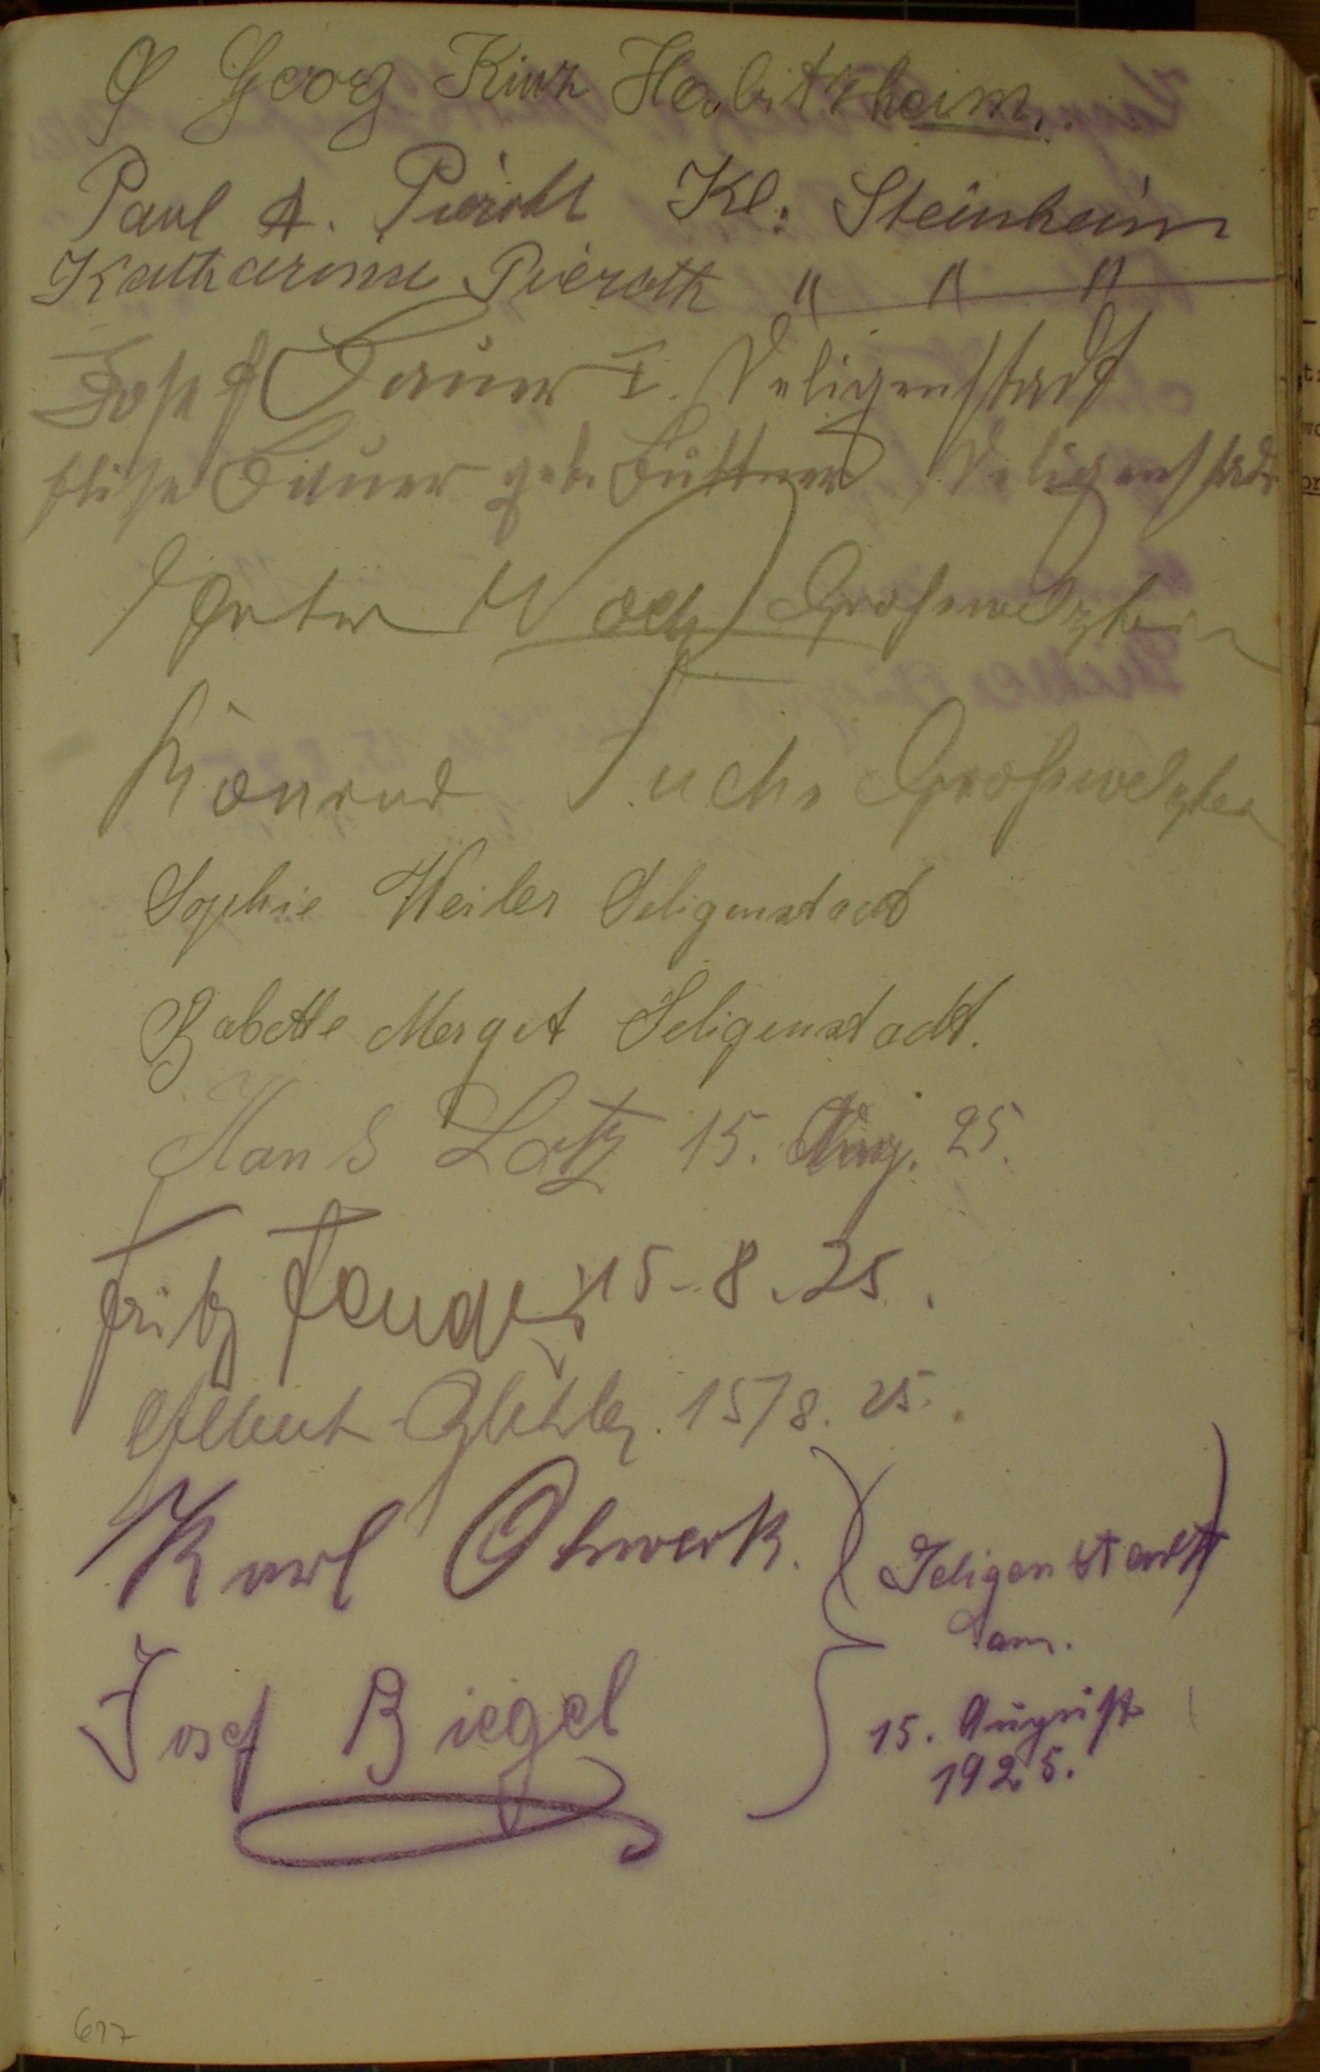 Georg Kinz Habitzheim.
Paul A. Pieroth Kl. Steinheim
Katharina Pieroth " " "
Josef Sauer I. Seligenstadt
Elise Sauer geb. Büttner Seligenstadt
Peter Koch Großwelzheim
Konrad Fuchs Großwelzheim
Sophie Weiler Seligenstadt
Babette Merget Seligenstadt.
Hans Lotz 15. Aug. 25.
Fritz 15-8.25.
15/8. 25.
Karl Ohwerk.
Seligenstadt
am.
Josef Biegel
15. August
1925.
677